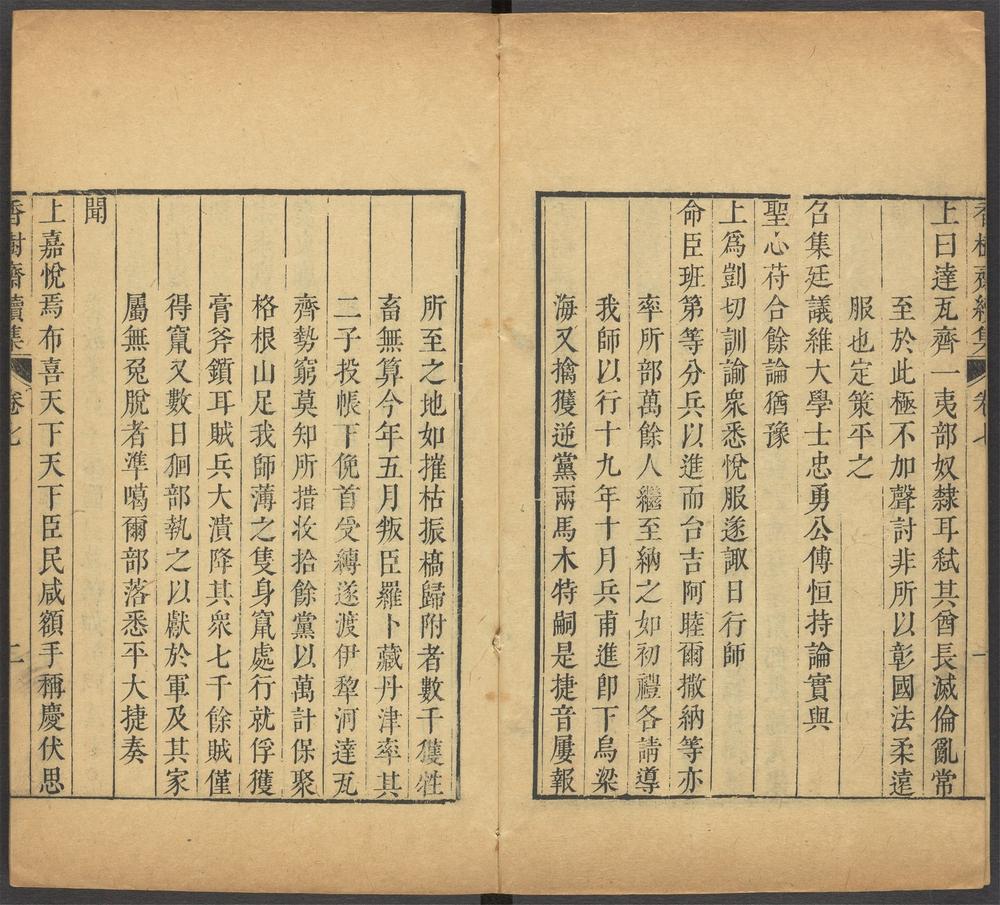 香樹齋續集 卷七 一
上曰達瓦齊一夷部奴隸耳弒其酋長滅倫亂常
至於此極不加聲討非所以彰國法柔遠
服也定策平之
召集廷議維大學士忠勇公傅恒持論實與
聖心苻合餘論猶豫
上爲剴切訓諭衆悉悅服遂諏日行師
命臣班第等分兵以進而台吉阿睦爾撒納等亦
率所部萬餘人繼至納之如初禮各請導
我師以行十九年十月兵甫進卽下烏梁
海又擒獲逆黨兩馬木特嗣是捷音屢報
所至之地如摧枯振槁歸附者數千獲牲
畜無算今年五月叛臣羅卜藏丹津率其
二子投帳下俛首受縛遂渡伊犂河達瓦
齊勢窮莫知所措妆拾餘黨以萬計保聚
格根山足我師薄之隻身竄處行就俘獲
膏斧鑕耳賊兵大潰降其衆七千餘賊僅
得竄又數日狪部執之以獻於軍及其家
屬無兔脫者準噶爾部落悉平大捷奏
聞
上嘉悅焉布喜天下天下臣民咸額手稱慶伏思
香樹齋續集 卷七 二